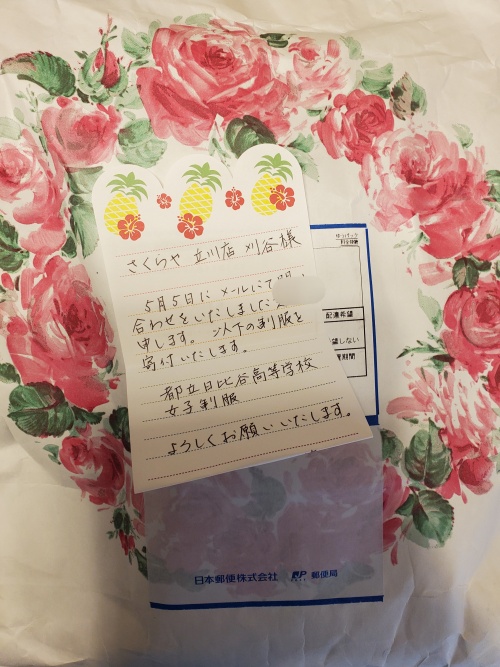 さくらや 立川店 刈谷様
5月5日に メールにて問い
合わせをいたしました
申します。以下の制服を
寄付いたします。
都立日比谷高等学校
女子制服
よろしくお願いいたします。
配達希望
望しない
期間
日本郵便株式会社 JP 郵便局